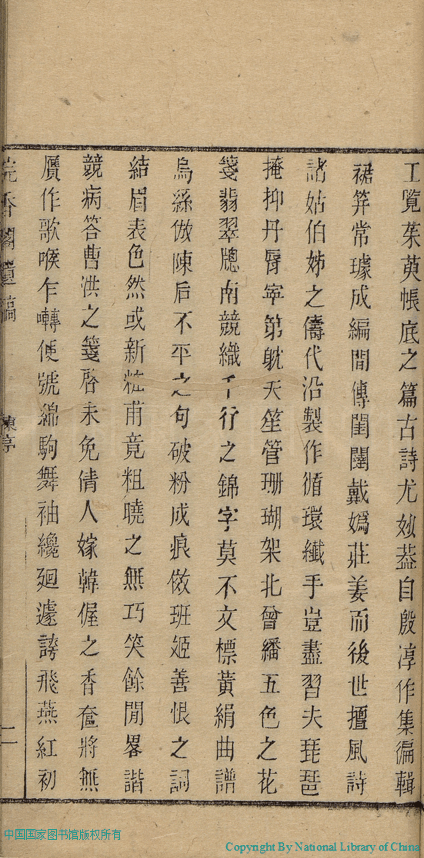 工覽茱萸帳底之篇古詩尤妙葢自殷淳作集徧輯
裙笄常璩成編閒傳閨闥戴嬀莊姜而後世擅風詩
諸姑伯姊之儔代沿製作循環纖手豈盡習夫琵琶
掩抑丹脣寧第躭夫笙管珊瑚架北曾繙五色之花
箋翡翠牕南競織千行之錦字莫不文標黃絹曲譜
烏絲倣陳后不平之句破粉成痕倣班姬善恨之詞
結眉表色然或新粧甫竟粗曉之無巧笑餘閒畧諧
競病答曹洪之箋啓未免倩人嫁韓偓之香奩將無
贗作歌喉乍囀便號綿駒舞袖纔廻遽誇飛燕紅初
二
中国国家图书馆版权所有
Copyright By National Library of China